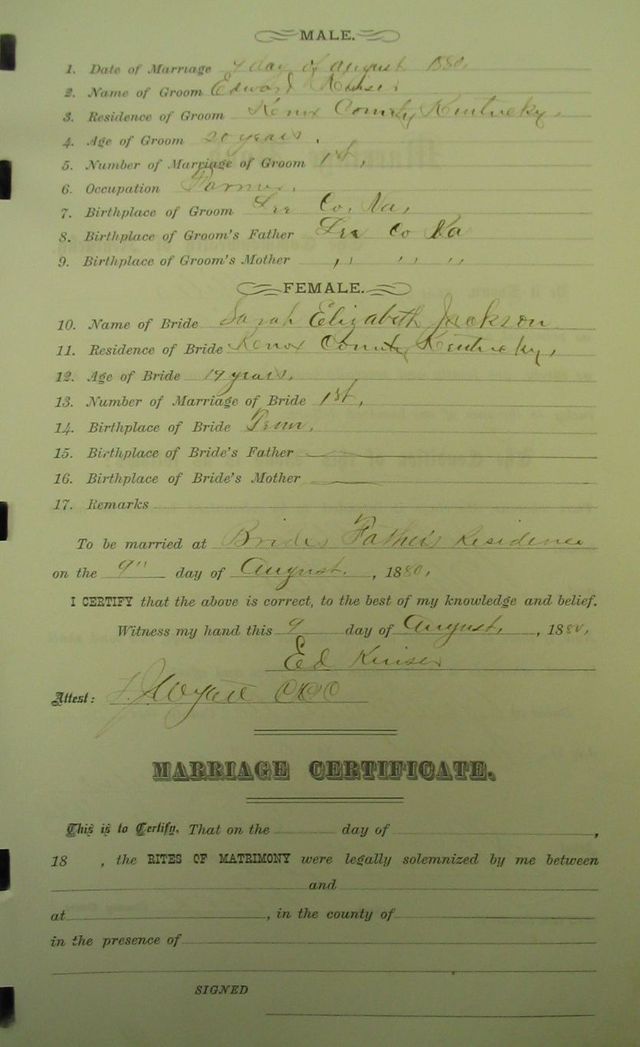 MALE.
1. Date of Marriage 9 day of August 1880.
2. Name of Groom Edward
3. Residence of Groom Knox County Kentucky.
4. Age of Groom 20 years.
5. Number of Marriage of Groom 1st,
6. Occupation Farmer.
7. Birthplace of Groom Lee Co. Va,
8. Birthplace of Groom's Father Lee Co Va
9. Birthplace of Groom's Mother " " "
FEMALE.
10. Name of Bride Sarah Elizabeth Jackson
11. Residence of Bride Knox County Kentucky,
12. Age of Bride 19 years.
13. Number of Marriage of Bride 1st,
14. Birthplace of Bride Tenn.
15. Birthplace of Bride's Father
16. Birthplace of Bride's Mother
17. Remarks
To be married at Brides Father's Residence
on the 9" day of August, 1880.
I CERTIFY that the above is correct, to the best of my knowledge and belief.
Witness my hand this 9 day of August, 1880,
Ed
Attest:
MARRIAGE CERTIFICATE.
This is to Certify, That on the day of ,
18 , the RITES OF MATRIMONY were legally solemnized by me between
and
at , in the county of
in the presence of
SIGNED